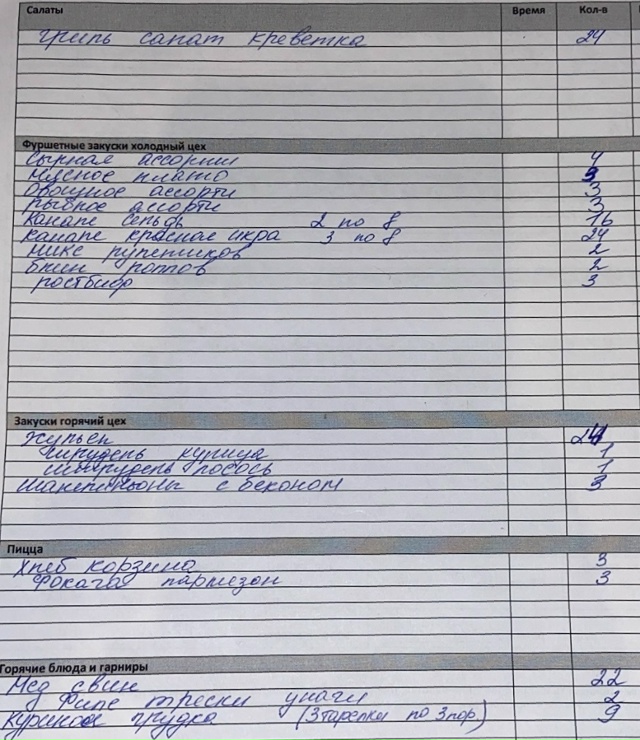 Салаты Время Кол-в
гриль салат креветка 24
Фуршетные закуски холодный цех
Сырная ассорти 4
мясное плато 3
Овощное ассорти 3
рыбное ассорти 3
Канапе сельдь 2 по 8 16
канапе красная икра 3 по 8 24
микс рулетиков 2
2
ростбиф 3
Закуски горячий цех
Жульен
штрудель курица 1
штрудель лосось 1
шампиньоны с беконом 3
Пицца
Хлеб корзина 3
Фокача пармезан 3
Горячие блюда и гарниры
Мед свин 22
Филе трески унаги 2
куриная грудка (3 тарелки по 3 пор.) 9